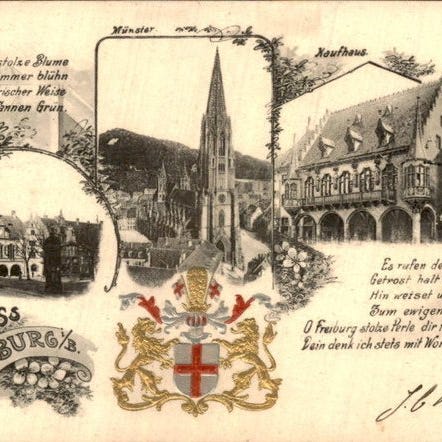 stolze Blume
mmer blühn
rischer Weise
annen Grün.
Münster.
Kaufhaus.
ss
BURG i/B.
Es rufen de
Getrost halt
Hin weiset
Zum ewigen
O Freiburg stolze Perle dir
Dein denk ich stets mit Won